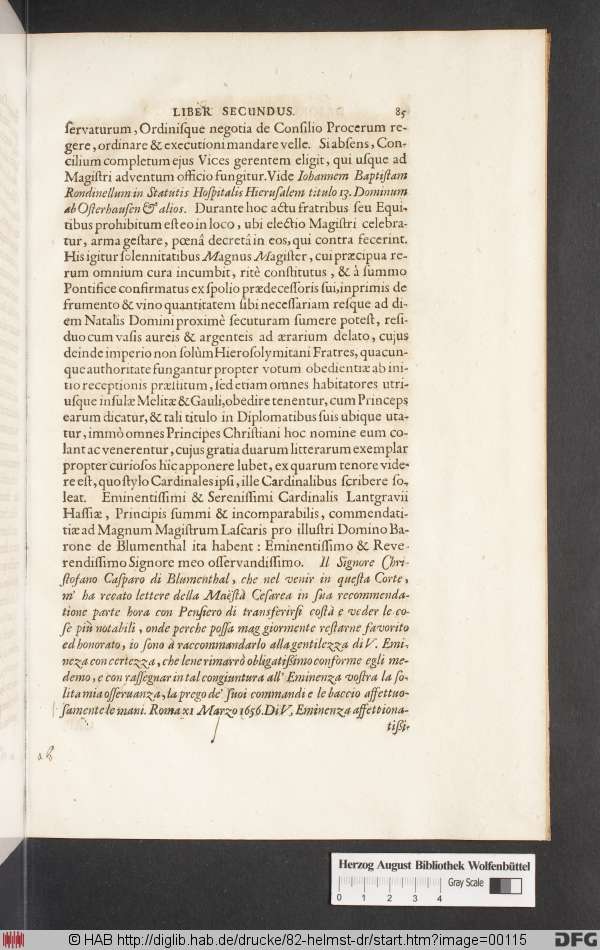 LIBER SECUNDUS. 85
servaturum, Ordinisque negotia de Consilio Procerum re-
gere, ordinare & executioni mandare velle. Si absens, Con-
cilium completum ejus Vices gerentem eligit, qui usque ad
Magistri adventum officio fungitur. Vide Iohannem Baptistam
Rondinellum in Statutis Hospitalis Hierusalem titulo 13. Dominum
ab Osterhausen & alios. Durante hoc actu fratribus seu Equi-
tibus prohibitum est eo in loco, ubi electio Magistri celebra-
tur, arma gestare, pœnâ decretâ in eos, qui contra fecerint.
His igitur solennitatibus Magnus Magister, cui præcipua re-
rum omnium cura incumbit, ritè constitutus, & à summo
Pontifice confirmatus ex spolio prædecessoris sui, inprimis de
frumento & vino quantitatem sibi necessariam resque ad di-
em Natalis Domini proximè secuturam sumere potest, resi-
duo cum vasis aureis & argenteis ad ærarium delato, cujus
deinde imperio non solùm Hierosolymitani Fratres, quacun-
que authoritate fungantur propter votum obedientiæ ab ini-
tio receptionis præstitum, sed etiam omnes habitatores utri-
usque insulæ Melitæ & Gauli, obedire tenentur, cum Princeps
earum dicatur, & tali titulo in Diplomatibus suis ubique uta-
tur, immò omnes Principes Christiani hoc nomine eum co-
lant ac venerentur, cujus gratia duarum litterarum exemplar
propter curiosos hîc apponere lubet, ex quarum tenore vide-
re est, quo stylo Cardinales ipsi, ille Cardinalibus scribere so-
leat. Eminentissimi & Serenissimi Cardinalis Lantgravii
Hassiæ, Principis summi & incomparabilis, commendati-
tiæ ad Magnum Magistrum Lascaris pro illustri Domino Ba-
rone de Blumenthal ita habent: Eminentissimo & Reve-
rendissimo Signore meo osservandissimo. Il Signore Chri-
stofano Casparo di Blumenthal, che nel venir in questa Corte,
m' ha recato lettere della Maestà Cesarea in sua recommenda-
tione parte hora con Pensiero di transferirsi costà e veder le co-
se più notabili, onde perche possa mag giormente restarne favorito
ed honorato, io sono à raccommandarlo alla gentilezza di V. Emi-
neza con certezza, che lene rimarrò obligatissimo conforme egli me-
demo, e con rassegnar in tal congiuntura all' Eminenza vostra la so-
lita mia osseruanza, la prego de' suoi commandi e le baccio affettuo-
samente le mani. Roma XI Marzo 1656. Di V. Eminenza affettiona-
tissi-
Herzog August Bibliothek Wolfenbüttel
0 1 2 3 4 Gray Scale
© HAB http://diglib.hab.de/drucke/82-helmst-dr/start.htm?image=00115
DFG